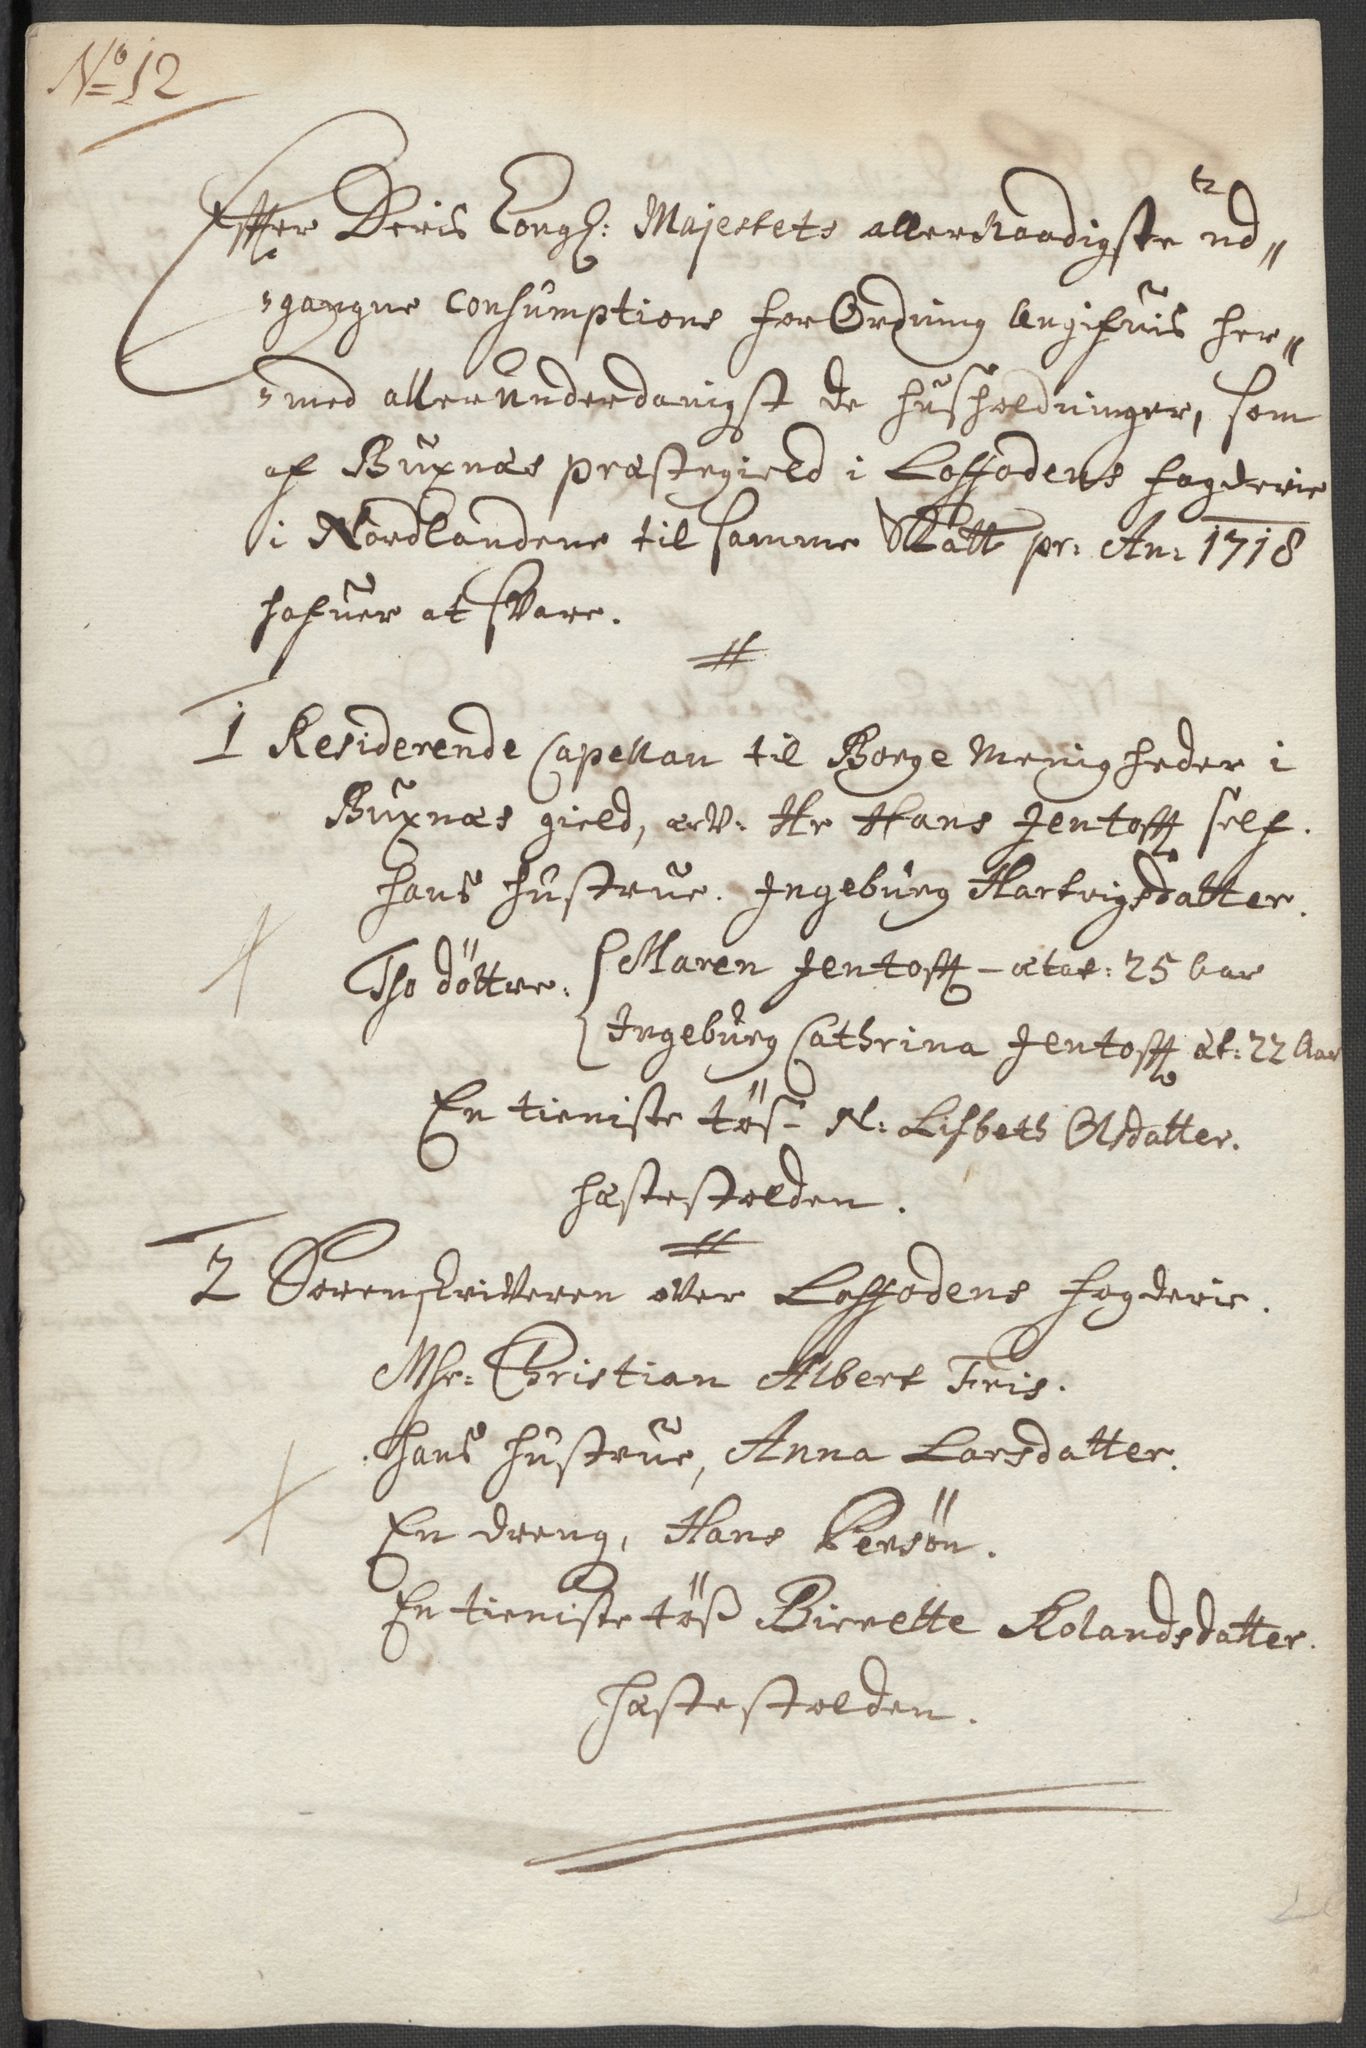 No 12
Effter Deris Kongl: Majestets allernaadigste ud„
„gangne Consumptions forOrdning Angifuis her„
„med allerunderdanigst de huusholdninger, som
af Buxnæs præstegield i Loffodens fogderie
i Nordlandene til samme Skatt pr: An: 1718
hafuer at svare.
1 Residerende Capellan til Borge Menigheder i
Buxnæs gield, Hr Hans Jentofft self.
hans hustrue. Ingeburg Hartvigsdatter.
Tho döttre. Maren Jentofft - ætat: 25 Aar
Ingeburg Cathrina Jentofft æt: 22 Aar
En tieniste töß N: Lisbeth Olsdatter.
hæstestolden.
2 Sorenskriveren over Loffodens fogderie.
Mhr: Christian Albert Friis.
hans hustrue, Anna Larsdatter.
En dreng, Hans Persön.
En tieniste töß Birrette Rolandsdatter.
hæstestolden.